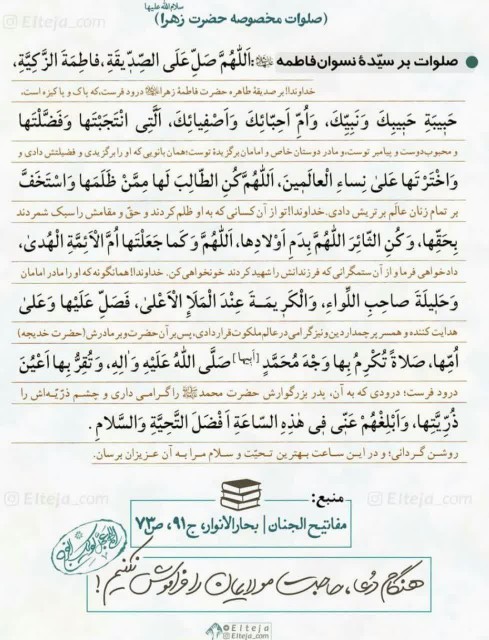 سلام‌الله‌علیها
(صلوات مخصوصه حضرت زهرا)
Elteja_com
صلوات بر سیّدهٔ نسوان فاطمه ﷺ: اَللّٰهُمَّ صَلِّ عَلَی الصِّدّیقَةِ، فاطِمَةَ الزَّکِیَّةِ،
خداوندا! بر صدیقهٔ طاهره حضرت فاطمهٔ زهرا درود فرست، که پاک و پاکیزه است،
حَبیبَةِ حَبیبِكَ وَنَبِیِّكَ، وَاُمِّ اَحِبّائِكَ وَاَصْفِیائِكَ، اَلَّتِی انْتَجَبْتَها وَفَضَّلْتَها
و محبوب دوست و پیامبر توست، و مادر دوستان خاص و امامان برگزیدهٔ توست؛ همان بانویی که او را برگزیدی و فضیلتش دادی و
وَاخْتَرْتَها عَلیٰ نِساءِ الْعالَمینَ، اَللّٰهُمَّ کُنِ الطّالِبَ لَها مِمَّنْ ظَلَمَها وَاسْتَخَفَّ
بر تمام زنان عالَم برتریش دادی. خداوندا! تو از آن کسانی که به او ظلم کردند و حقّ و مقامش را سبک شمردند
بِحَقِّها، وَکُنِ الثّائِرَ اللّٰهُمَّ بِدَمِ اَوْلادِها، اَللّٰهُمَّ وَکَما جَعَلْتَها اُمَّ الْاَئِمَّةِ الْهُدیٰ،
دادخواهی فرما و از آن ستمگرانی که فرزندانش را شهید کردند خونخواهی کن. خداوندا! همانگونه که او را مادر امامان
وَحَلیلَةَ صاحِبِ اللِّواءِ، وَالْکَریمَةَ عِنْدَ الْمَلَاِ الْاَعْلیٰ، فَصَلِّ عَلَیْها وَعَلیٰ
هدایت کننده و همسر پرچمدار دین و نیز گرامی در عالم ملکوت قرار دادی، پس بر آن حضرت و بر مادرش (حضرت خدیجه)
اُمِّها، صَلاةً تُکْرِمُ بِها وَجْهَ مُحَمَّدٍ [اَبیها] صَلَّی اللّٰهُ عَلَیْهِ وَالِهِ، وَتُقِرُّ بِها اَعْیُنَ
درود فرست؛ درودی که به آن، پدر بزرگوارش حضرت محمد ﷺ را گرامی داری و چشم ذرّیّه‌اش را
ذُرِّیَّتِها، وَاَبْلِغْهُمْ عَنّی فی هٰذِهِ السّاعَةِ اَفْضَلَ التَّحِیَّةِ وَالسَّلامِ.
روشن گردانی؛ و در این ساعت بهترین تحیّت و سلام مرا به آن عزیزان برسان.
Elteja_com
Elteja_com
منبع:
مفاتیح الجنان | بحارالانوار، ج۹۱، ص۷۳
هنگام دعا، حاجت مولایمان را فراموش نکنیم!
Elteja
Elteja_com